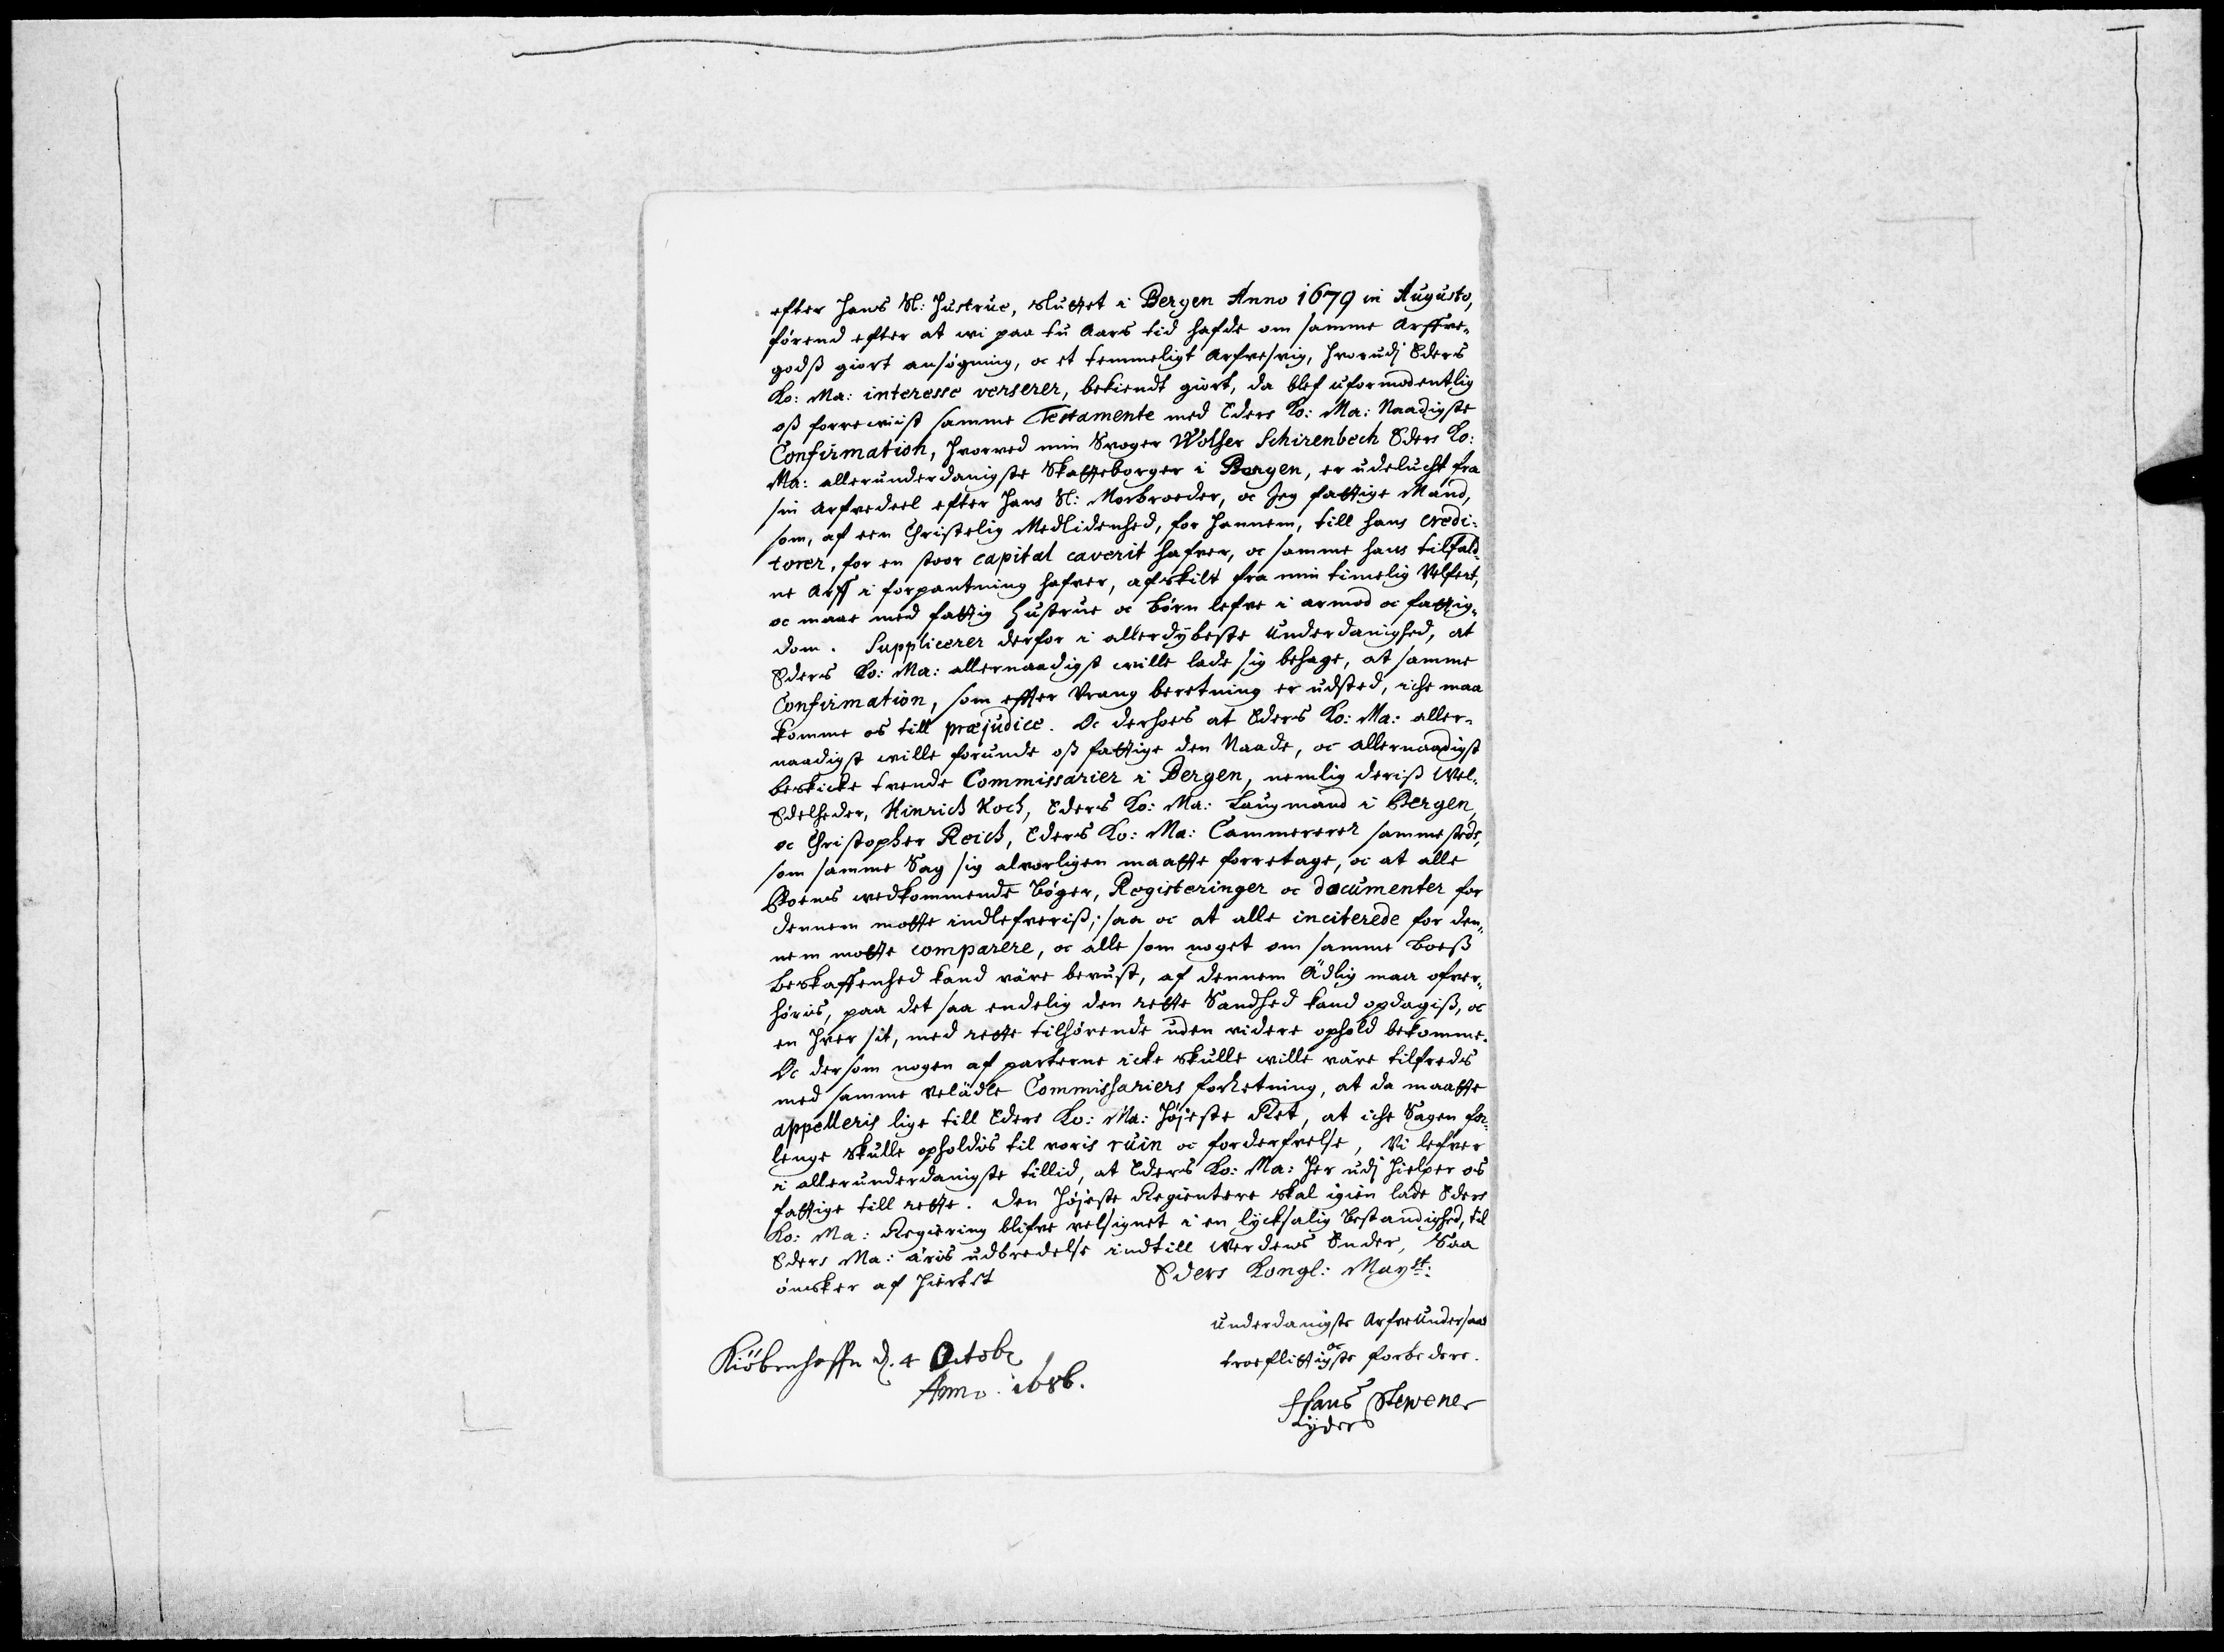 efter hans Sl: Hustrue, sluttet i Bergen Anno 1679 in Augusto,
förend efter at wi paa tu Aars tid hafde om samme Arffve-
godß giort ansögning, oc et temmeligt Arfvesvig, hvorudj Eders
Ko: Ma: interesse verserer, bekiendt giort, da blef uformodentlig
oß forrewiist samme Testamente med Eders Ko: Ma: Naadigste
Confirmation, hvorved min Svoger Wolher Schirenbech Eders Ko:
Ma: allerunderdanigste Skatteborger i Bergen, er udelucht fra
sin Arfvedeel efter hans Sl: Morbroeder, oc Jeg fattige Mand,
som, af een Christelig Medlidenhed, for hannem, till hans credi-
torer, for en stoor capital caverit hafver, oc samme hans tilfald-
ne Arff i forpantning hafver, afskilt fra min timelig Velfert,
oc maae med fattig Hustrue oc börn lefve i armod oc fattig-
dom. Supplicerer derfor i allerdÿbeste Underdanighed, at
Eders Ko: Ma: allernaadigst wille lade sig behage, at samme
Confirmation, som effter Vrang beretning er udsted, iche maa
komme os till præjudice. Oc derhoes at Eders Ko: Ma: aller-
naadigst wille forunde oß fattige den Naade, oc allernaadigst
beskicke tvende Commissarier i Bergen, nemlig deriß Wel-
Edelheder, Hinrich Koch, Eders Ko: Ma: Laugmand i Bergen,
oc Christopher Reich, Eders Ko: Ma: Cammererer sammesteds,
som samme Sag sig alvorligen maatte forretage, oc at alle
Boens wedkommende Böger, Registeringer oc documenter for
dennem motte indlefveriß; saa oc at alle inciterede for den-
nem motte comparere, oc alle som noget om samme Boeß
beskaffenhed kand väre bevust, af dennem Ädlig maa ofver-
höris, paa det saa endelig den rette Sandhed kand opdagiß, oc
en hver sit, med rette tilhörende uden videre ophold bekomme.
Oc dersom nogen af parterne icke skulle wille väre tilfreds
med samme Velädle Commissariers forretning, at da maatte
appelleris lige till Eders Ko: Ma: Höjeste Ret, at iche Sagen for-
lenge skulle opholdis til voris ruin oc forderfvelse, Vi lefver
i allerunderdanigste tillid, at Eders Ko: Ma: her udj hielper os
fattige till rette. Den Höjeste Regientere skal igien lade Eders
Ko: Ma: Regiering blifve velsignet i en lÿcksalig Bestandighed, til
Eders Ma: äris udbredelse indtill Verdens Ender, Saa
önsker af Hiertet
Eders Kongl: Mayst:
underdanigste Arfve Undersaat
oc
troeflittigste forbedere.
Kiöbenhaffn d. 4 Octobr
Anno 1686.
Hans Stewener
Lÿders